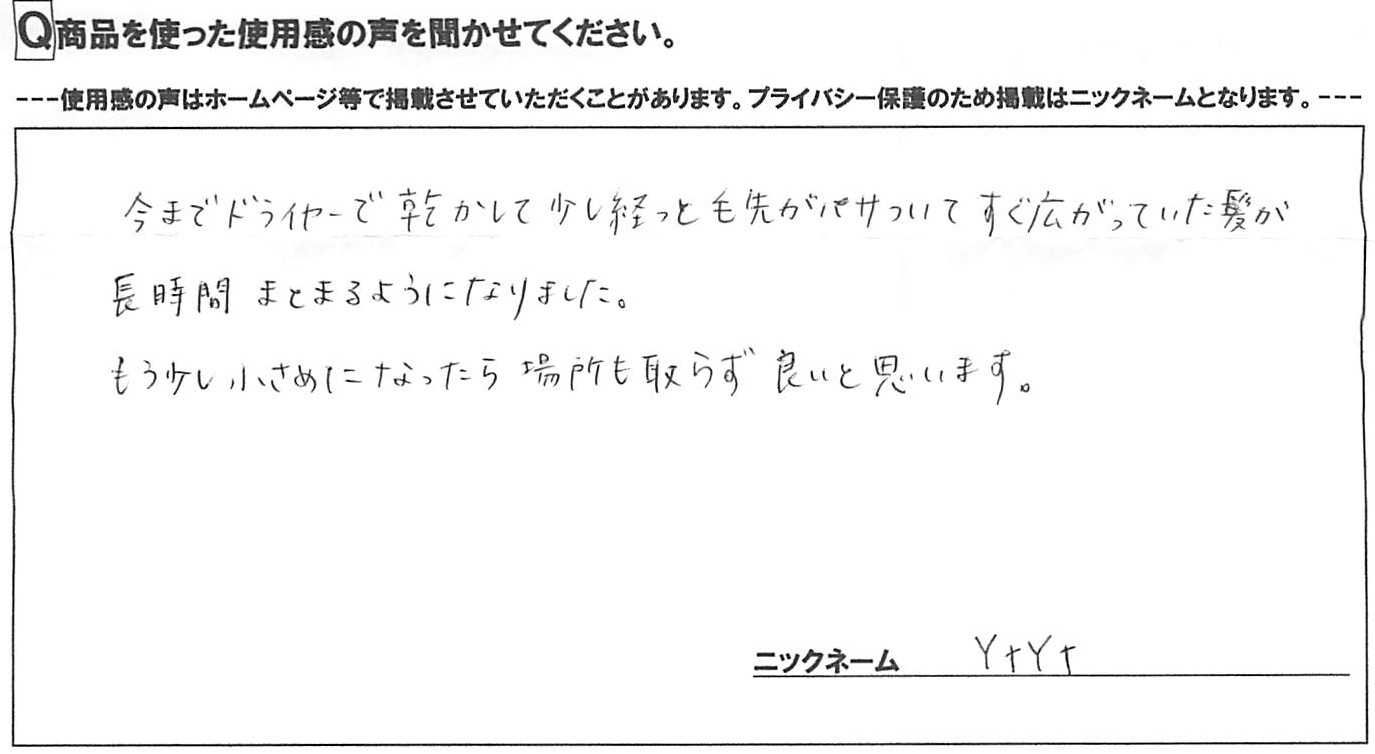 Q商品を使った使用感の声を聞かせてください。
---使用感の声はホームページ等で掲載させていただくことがあります。プライバシー保護のため掲載はニックネームとなります。---
今までドライヤーで乾かして少し経っと毛先がパサついてすぐ広がっていた髪が
長時間まとまるようになりました。
もう少し小さめになったら場所も取らず良いと思います。
ニックネーム YtYt